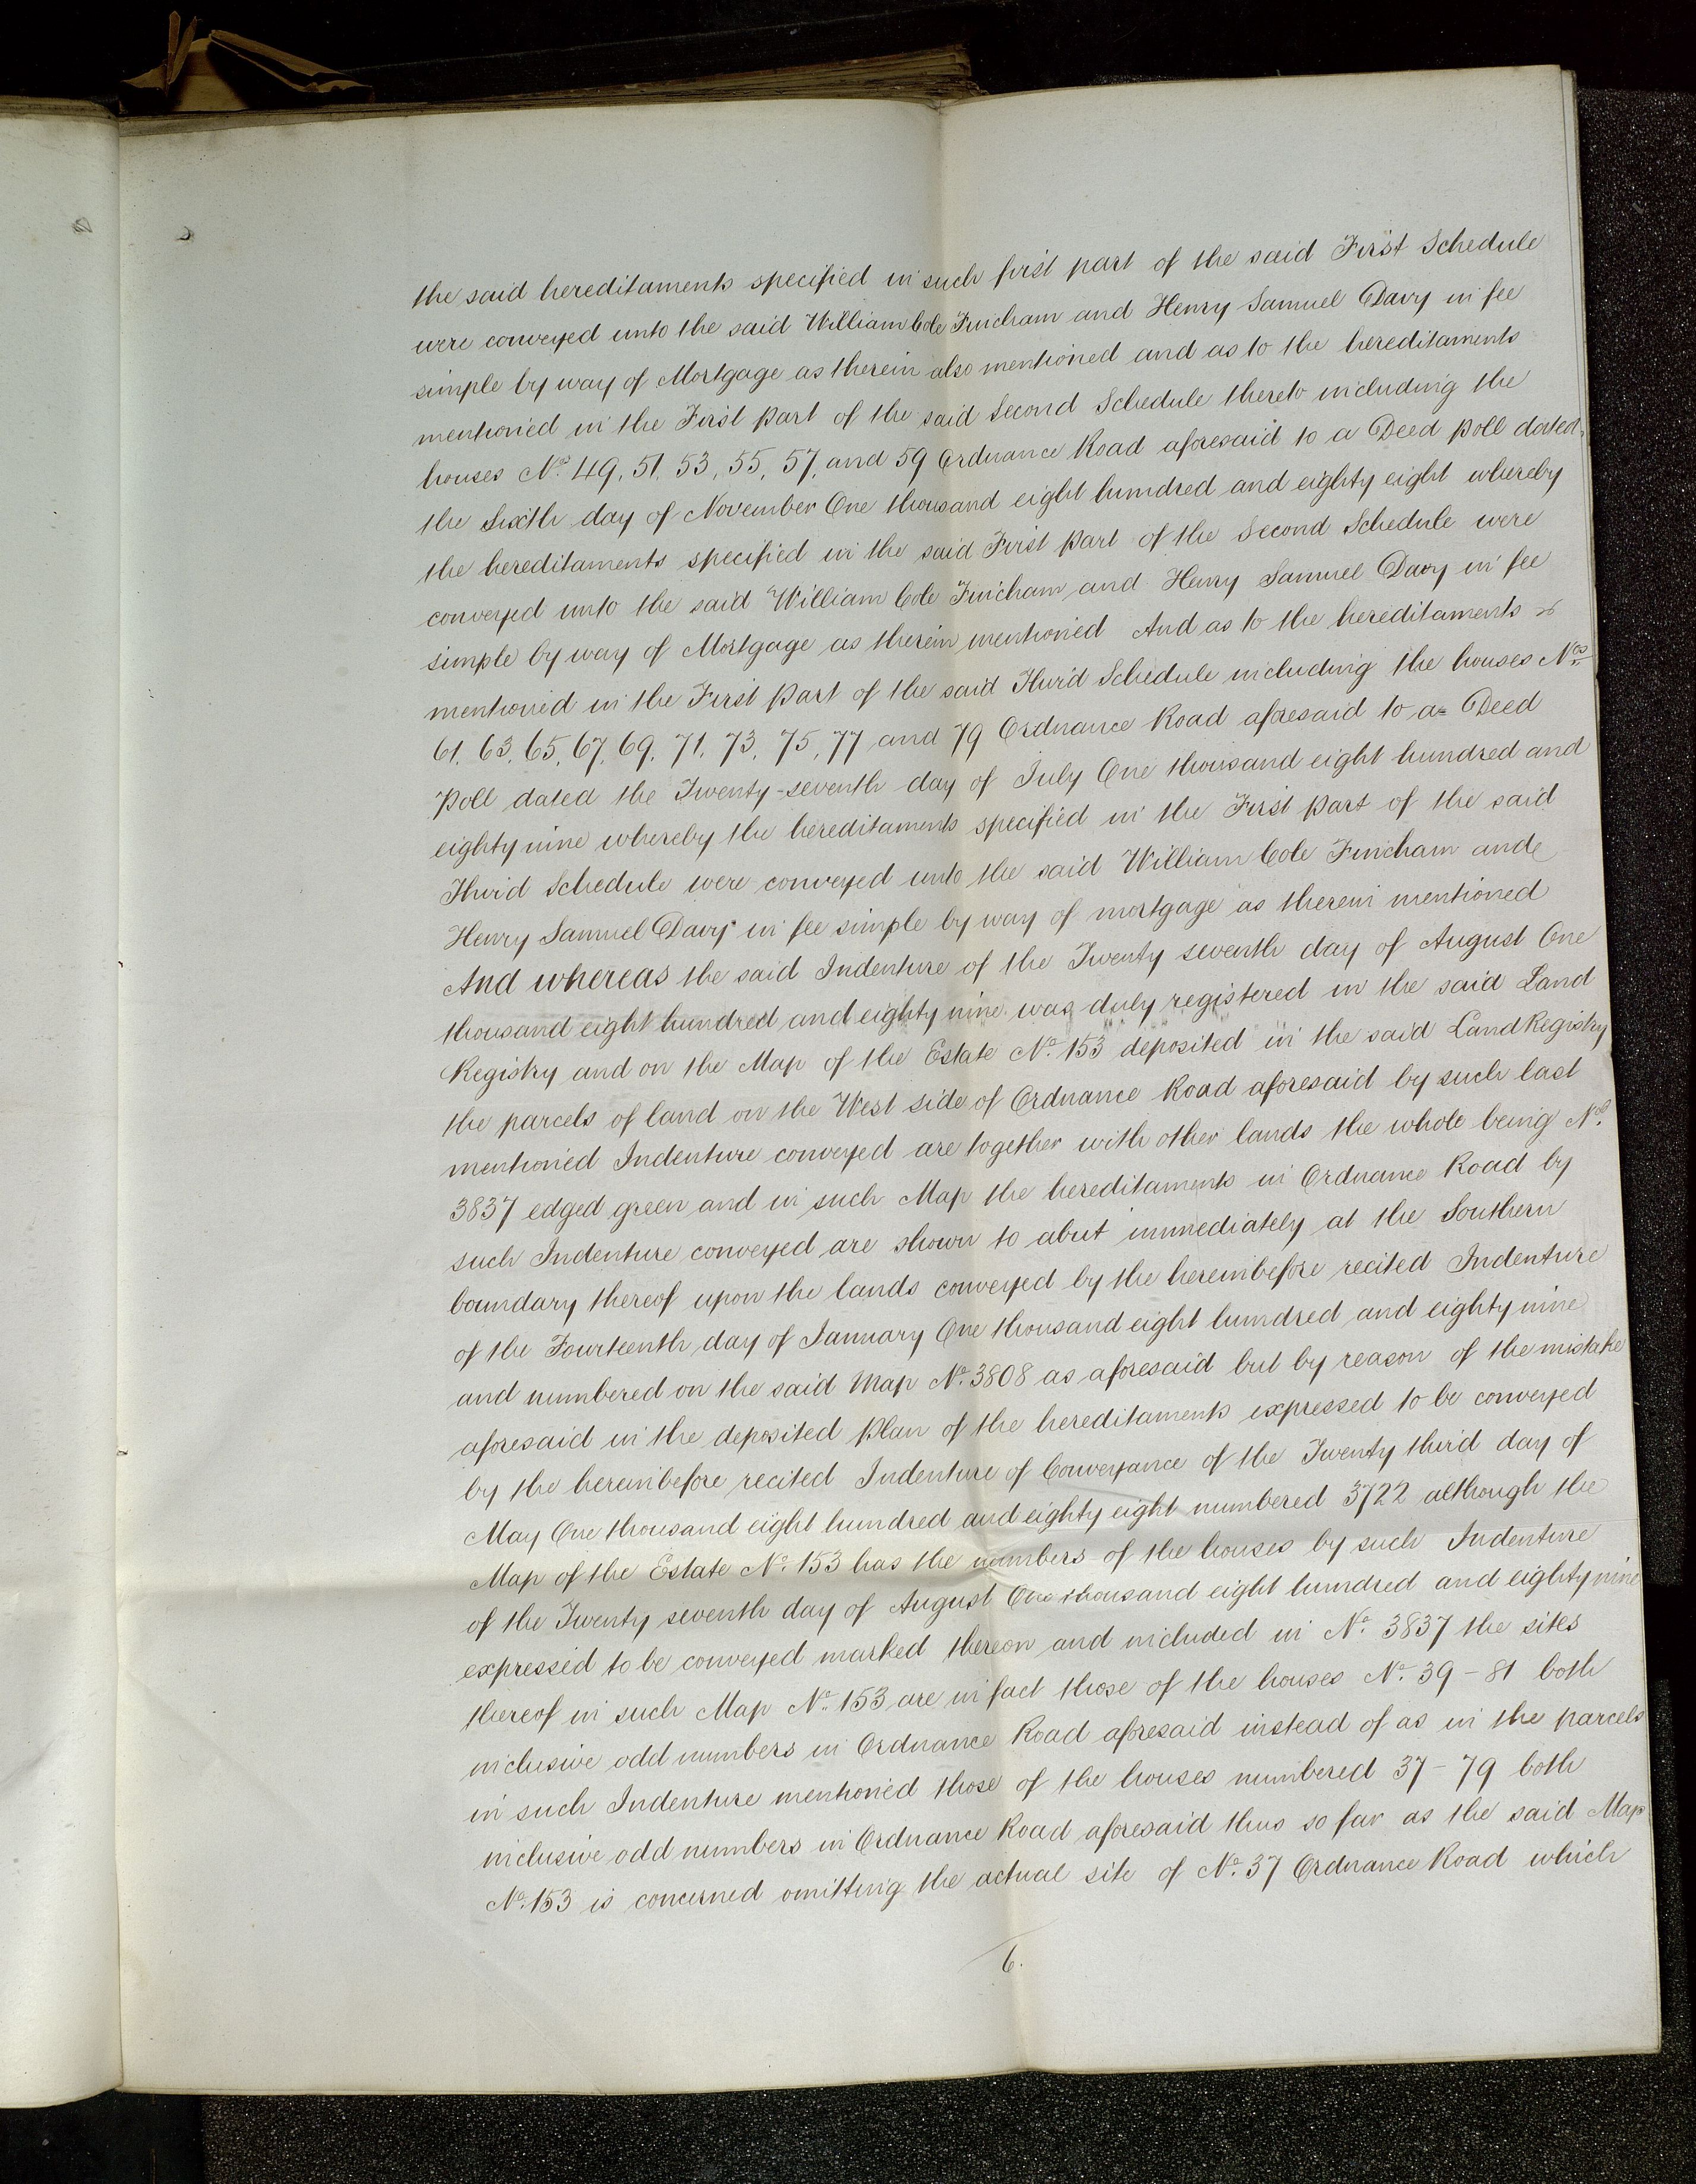 the said hereditaments specified in such first part of the said First Schedule
were conveyed unto the said William Cole Fincham and Henry Samuel Davy in fee
simple by way of Mortgage as therein also mentioned and as to the hereditaments
mentioned in the First part of the said Second Schedule thereto including the
houses Nos. 49, 51, 53, 55, 57, and 59 Ordnance Road aforesaid to a Deed poll dated
the Sixth day of November One thousand eight hundred and eighty eight whereby
the hereditaments specified in the said First part of the Second Schedule were
conveyed unto the said William Cole Fincham and Henry Samuel Davy in fee
simple by way of Mortgage as therein mentioned And as to the hereditaments
mentioned in the First part of the said Third Schedule including the houses Nos.
61, 63, 65, 67, 69, 71, 73, 75, 77 and 79 Ordnance Road aforesaid to a Deed
Poll dated the Twenty-seventh day of July One thousand eight hundred and
eighty nine whereby the hereditaments specified in the First part of the said
Third Schedule were conveyed unto the said William Cole Fincham and
Henry Samuel Davy in fee simple by way of mortgage as therein mentioned
And whereas the said Indenture of the Twenty seventh day of August One
thousand eight hundred and eighty nine was duly registered in the said Land
Registry and on the Map of the Estate No. 153 deposited in the said Land Registry
the parcels of land on the West side of Ordnance Road aforesaid by such last
mentioned Indenture conveyed are together with other lands the whole being No.
3837 edged green and in such Map the hereditaments in Ordnance Road by
such Indenture conveyed are shown to abut immediately at the Southern
boundary thereof upon the lands conveyed by the hereinbefore recited Indenture
of the Fourteenth day of January One thousand eight hundred and eighty nine
and numbered on the said Map No. 3808 as aforesaid but by reason of the mistake
aforesaid in the deposited plan of the hereditaments expressed to be conveyed
by the hereinbefore recited Indenture of Conveyance of the Twenty third day of
May One thousand eight hundred and eighty eight numbered 3722 although the
Map of the Estate No. 153 has the numbers of the houses by such Indenture
of the Twenty seventh day of August One thousand eight hundred and eighty nine
expressed to be conveyed marked thereon and included in No. 3837 the sites
thereof in such Map No. 153 are in fact those of the houses No. 39 - 81 both
inclusive odd numbers in Ordnance Road aforesaid instead of as in the parcels
in such Indenture mentioned those of the houses numbered 37 - 79 both
inclusive odd numbers in Ordnance Road aforesaid thus so far as the said Map
No. 153 is concerned omitting the actual site of No. 37 Ordnance Road which
6.